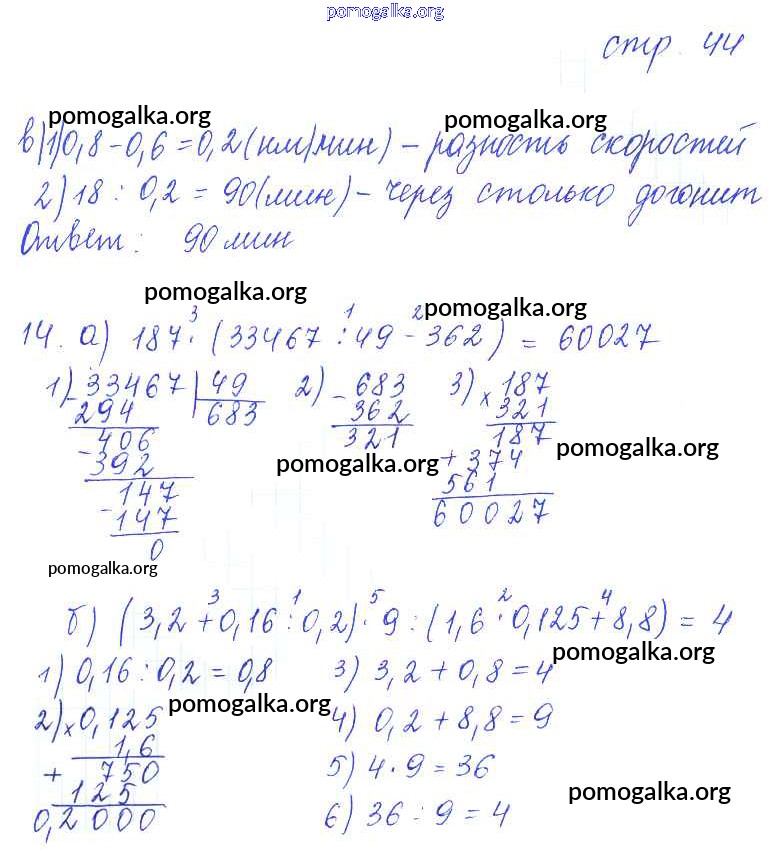 pomogalka.org
стр. 44
pomogalka.org pomogalka.org
в) 1) 0,8 - 0,6 = 0,2 (км/мин) - разность скоростей
2) 18 : 0,2 = 90 (мин) - через столько догонит
Ответ: 90 мин
pomogalka.org
pomogalka.org
3 1 2
14. а) 187 · (33467 : 49 - 362) = 60027
1) - 33467 | 49 2) - 683 3) × 187
294 683 362 321
406 321 187
- 392 + 374 pomogalka.org
pomogalka.org
147 561
- 147 60027
0
pomogalka.org
3 1 5 2 4
б) (3,2 + 0,16 : 0,2) · 9 : (1,6 · 0,125 + 8,8) = 4
pomogalka.org
1) 0,16 : 0,2 = 0,8 3) 3,2 + 0,8 = 4
pomogalka.org
2) × 0,125 4) 0,2 + 8,8 = 9
1,6
+ 750 5) 4 · 9 = 36
125 pomogalka.org
0,2000 6) 36 : 9 = 4